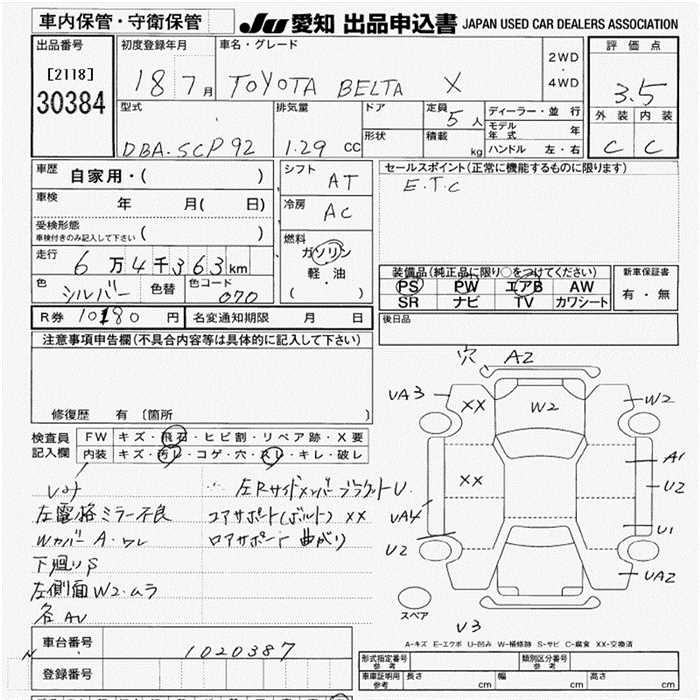 車内保管・守衛保管
JU 愛知 出品申込書 JAPAN USED CAR DEALERS ASSOCIATION
出品番号
[2118]
30384
初度登録年月
18 7月
車名・グレード
TOYOTA BELTA X
2WD
・
4WD
評価点
3.5
外装 内装
C C
型式
DBA-SCP92
排気量
1.29 cc
ドア
形状
定員 5人
積載 kg
ディーラー・並行
モデル年式 年
ハンドル 左・右
車歴 自家用・( )
車検 年 月( 日)
受検形態
車検付きのみ記入して下さい ( )
走行 6万4千363km
色 シルバー 色替 色コード 070
シフト AT
冷房 AC
燃料
ガソリン
軽・油
( )
セールスポイント(正常に機能するものに限ります)
E.T.C
装備品(純正品に限り○をつけてください)
PS PW エアB AW
SR ナビ TV カワシート
新車保証書
有・無
R券 10180円 名変通知期限 月 日
後日品
注意事項申告欄(不具合内容等は具体的に記入して下さい)
修復歴 有 〔箇所 〕
検査員記入欄
FW キズ・飛石・ヒビ割・リペア跡・X要
内装 キズ・汚レ・コゲ・穴・スレ・キレ・破レ
左Rサイドメンバーブラケット U.
左電格ミラー不良
コアサポート(ボルト) XX
Wカバー A・ワレ
ロアサポート 曲がり
下廻りS
左側面W2・ムラ
各AU
穴 A2
UA3
XX
W2
W2
XX
A1
U2
UA4
U1
U2
UA2
スペア
V3
A-キズ E-エクボ U-凹み W-補修跡 S-サビ C-腐食 XX-交換済
車台番号 1020387
登録番号
形式指定番号 参考
類別区分番号 参考
車庫証明用 参考 長さ cm 幅 cm 高さ cm